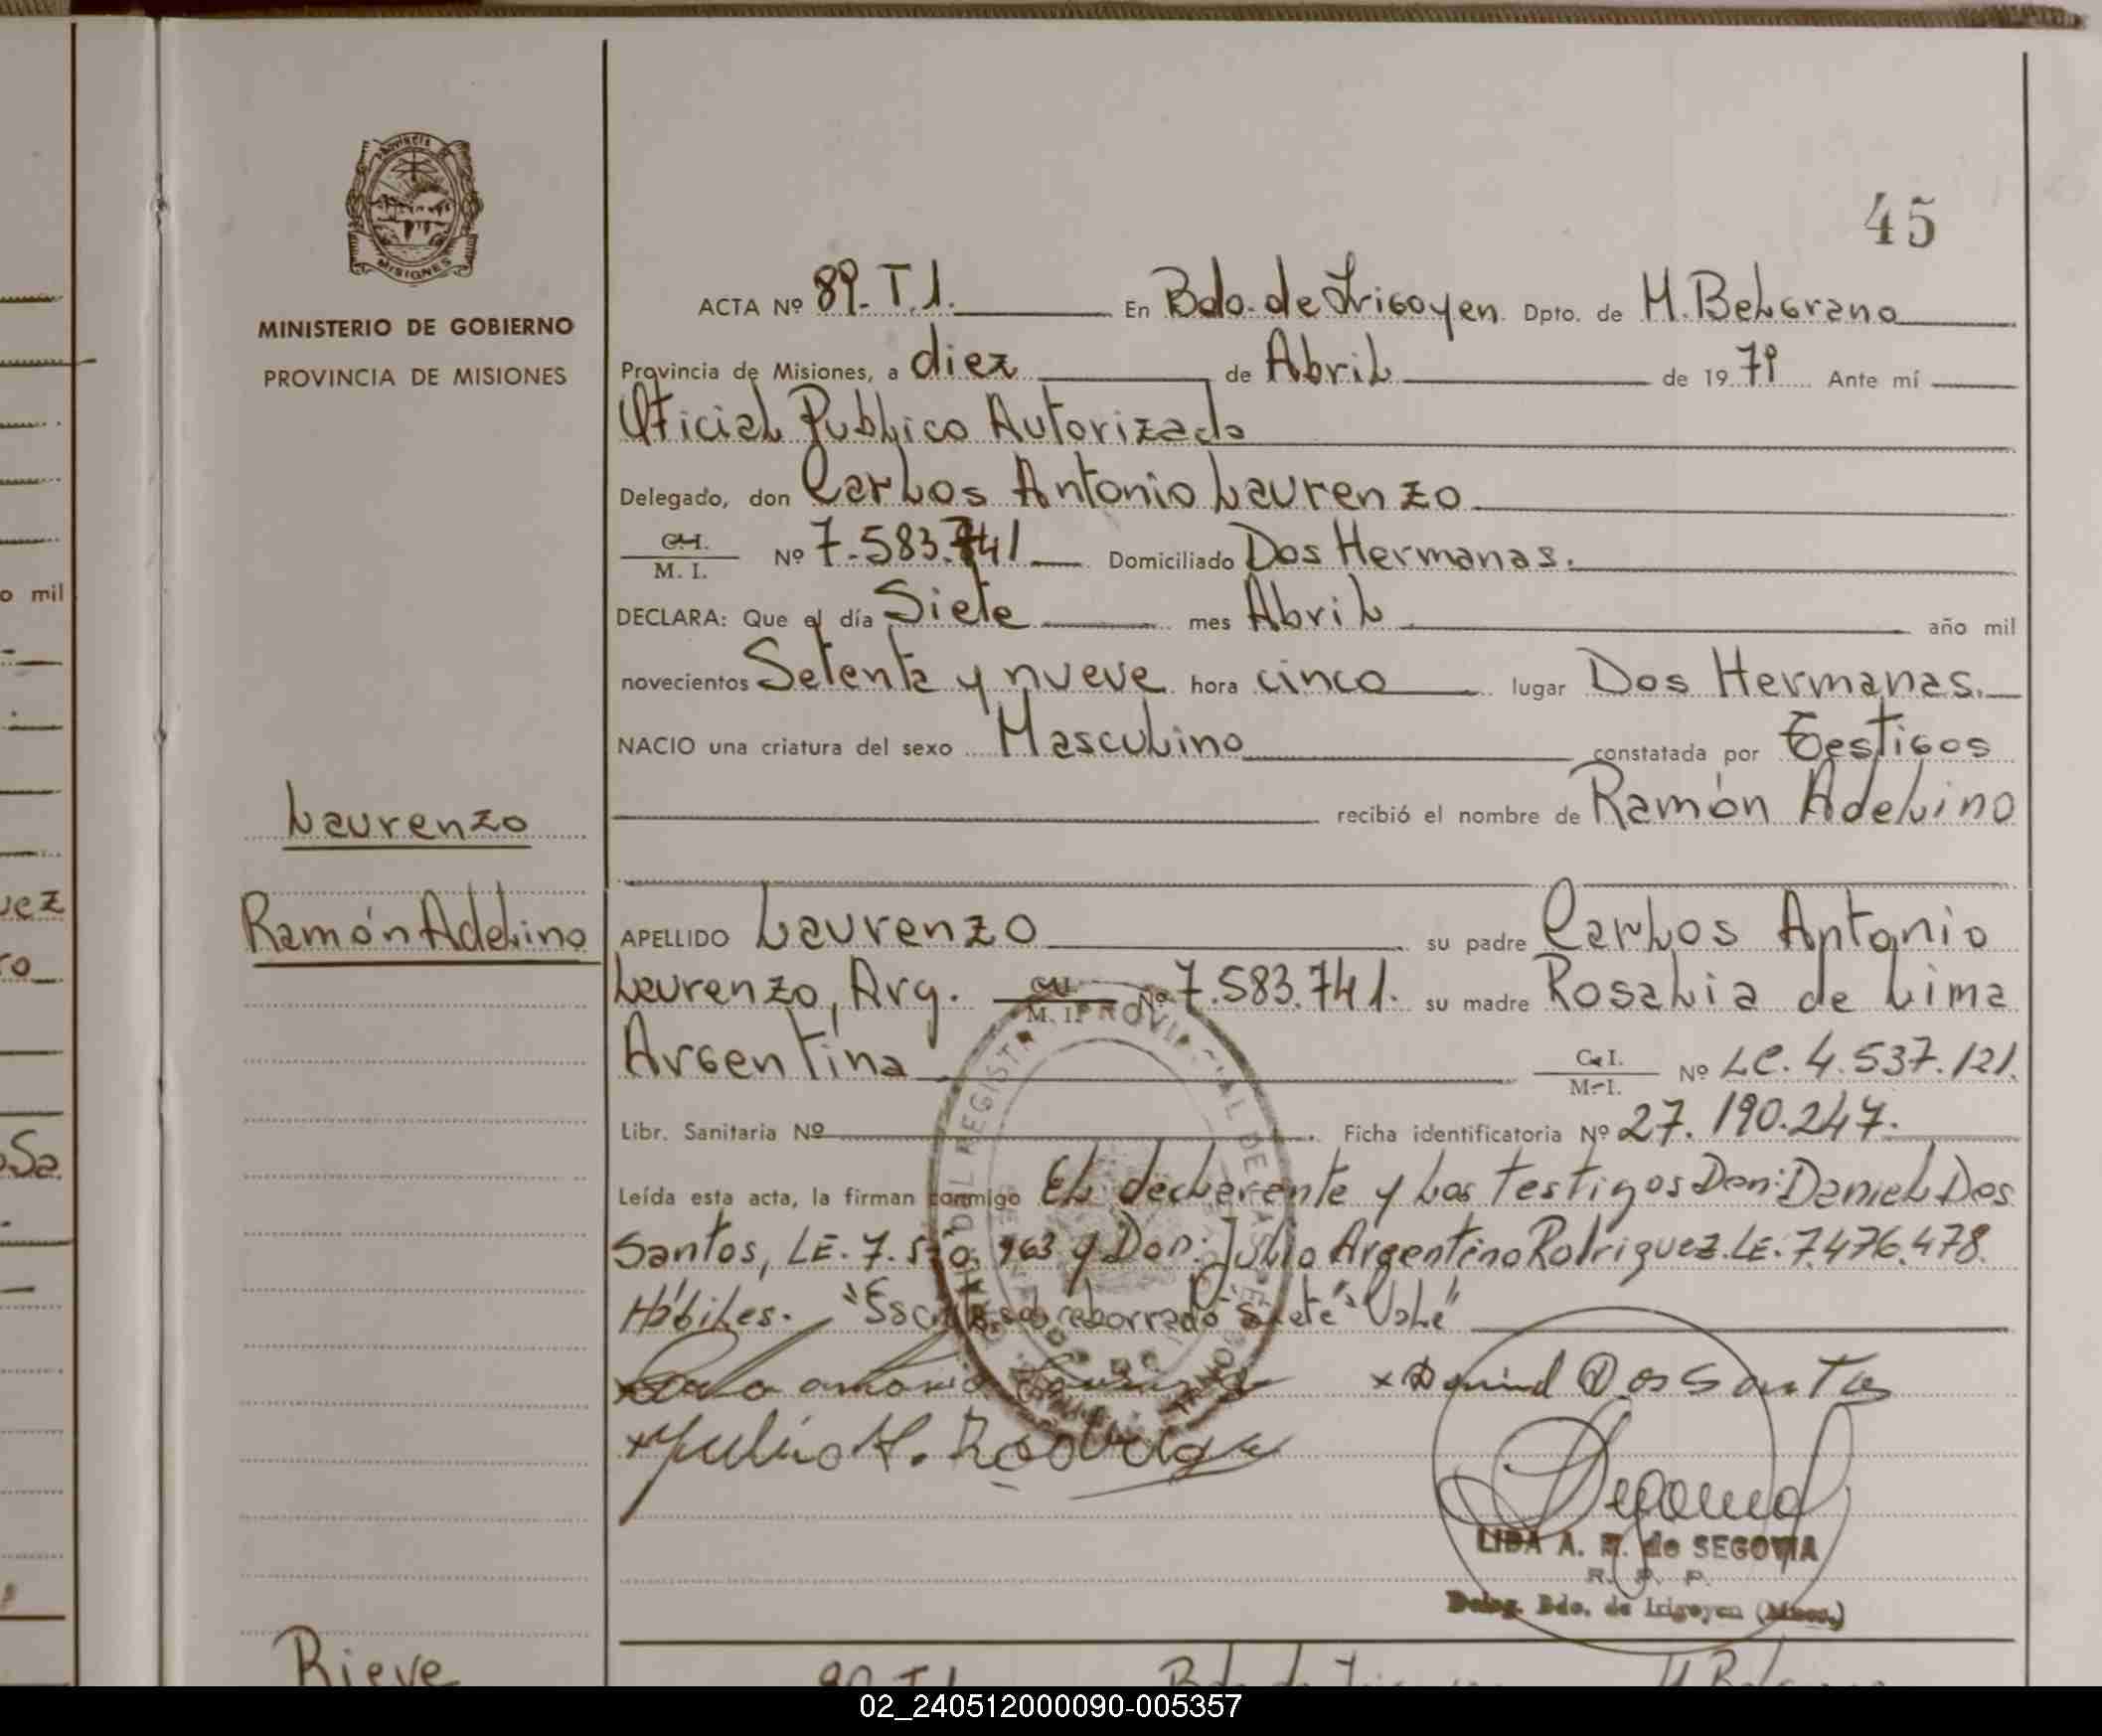 o mil
uez
ro
Provincia de
MISIONES
MINISTERIO DE GOBIERNO
PROVINCIA DE MISIONES
Laurenzo
Ramón Adelino
Rieve
45
ACTA Nº 89-T.1. En Bdo. de Irigoyen Dpto. de M. Belgrano
Provincia de Misiones, a diez de Abril de 1979 Ante mí
Oficial Publico Autorizado
Delegado, don Carlos Antonio Laurenzo
C.I. M. I. Nº 7.583.741 Domiciliado Dos Hermanas.
DECLARA: Que el día Siete mes Abril año mil
novecientos Setenta y nueve hora cinco lugar Dos Hermanas.
NACIO una criatura del sexo Masculino constatada por Testigos
recibió el nombre de Ramón Adelino
APELLIDO Laurenzo su padre Carlos Antonio
Laurenzo, Arg. C.I. M. I. Nº 7.583.741. su madre Rosalia de Lima
Argentina C.I. M.I. Nº LC. 4.537.121.
Libr. Sanitaria Nº Ficha identificatoria Nº 27.190.247.
Leída esta acta, la firman conmigo El declarente y los testigos Don: Daniel Dos
Santos, LE. 7. 963 y Don: Julio Argentino Rodriguez. LE. 7.476.478.
Hábiles. "Escrito sob reborrado" siete" "Vale"
x Daniel Dos Santos
x Julio A. Rodrigue
LIDA A. R. de SEGOVIA
R. P. P.
Deleg. Bdo. de Irigoyen (Mnes.)
90 T.1
02_240512000090-005357